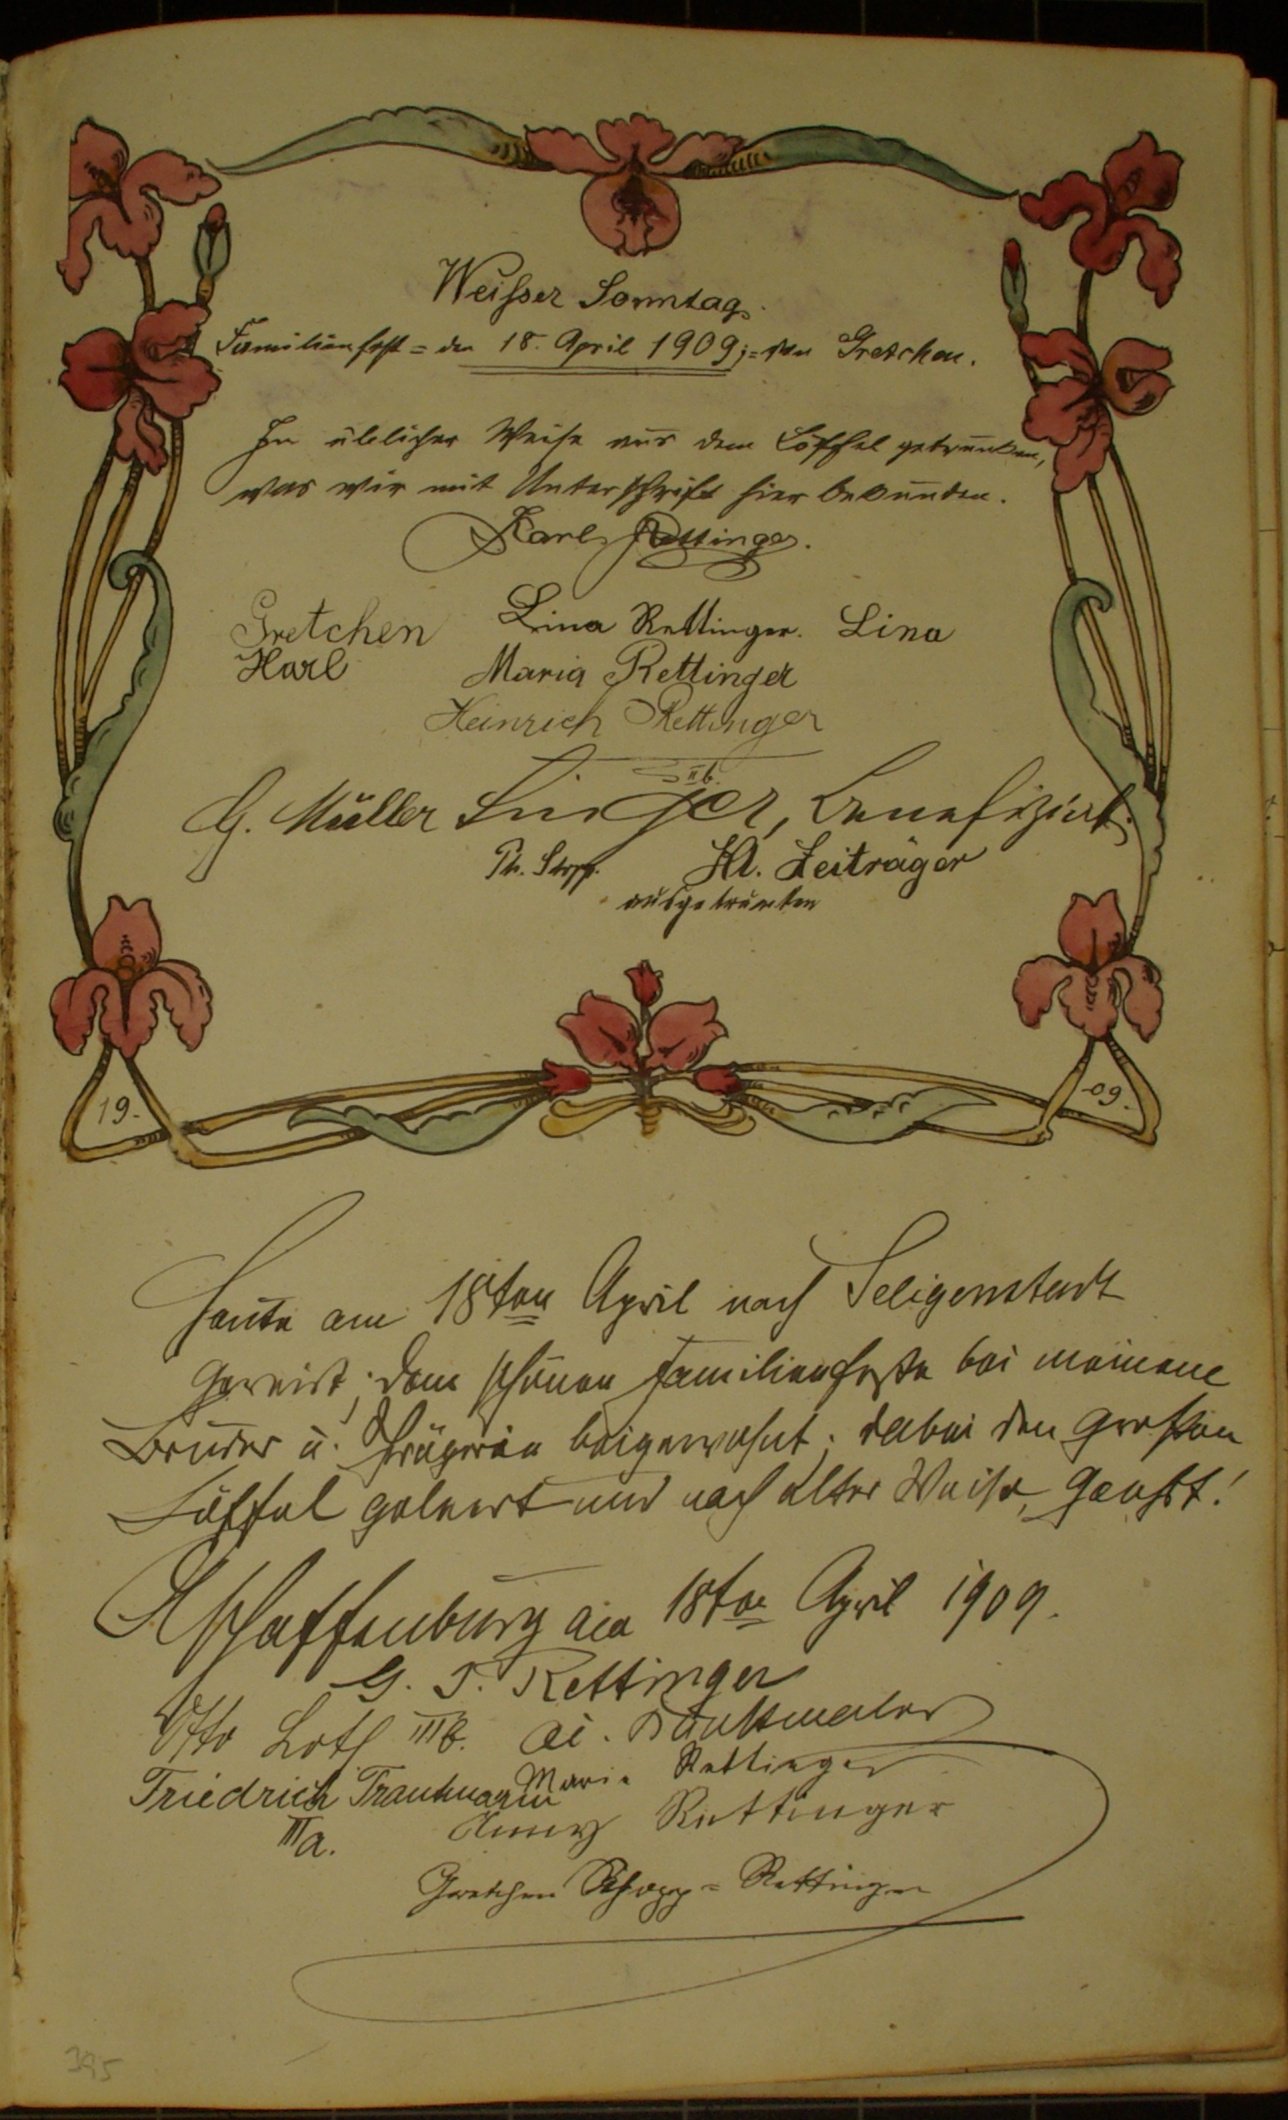 Weisser Sonntag.
Familienfest = den 18. April 1909; = von Gretchen.
In üblicher Weise aus dem Löffel getrunken,
was wir mit Unterschrift hier bekunden.
Karl Rettinger.
Gretchen Lina Rettinger. Lina
Karl Maria Rettinger
Heinrich Rettinger
IIb.
G. Müller Benefiziat.
H. Zeiträger
ausgetrunken
19. 09.
Heute am 18ten April nach Seligenstadt
gereist, dem schönen Familienfeste bei meinem
Bruder u. Schwägerin beigewohnt; dabei den grossen
Löffel geleert und nach alter Weise,
Aschaffenburg am 18ten April 1909.
G. J. Rettinger
Otto Loth IIIb.
Friedrich Trautmann Marie Rettinger
IIIa. Rettinger
Gretchen Schopp = Rettinger
395